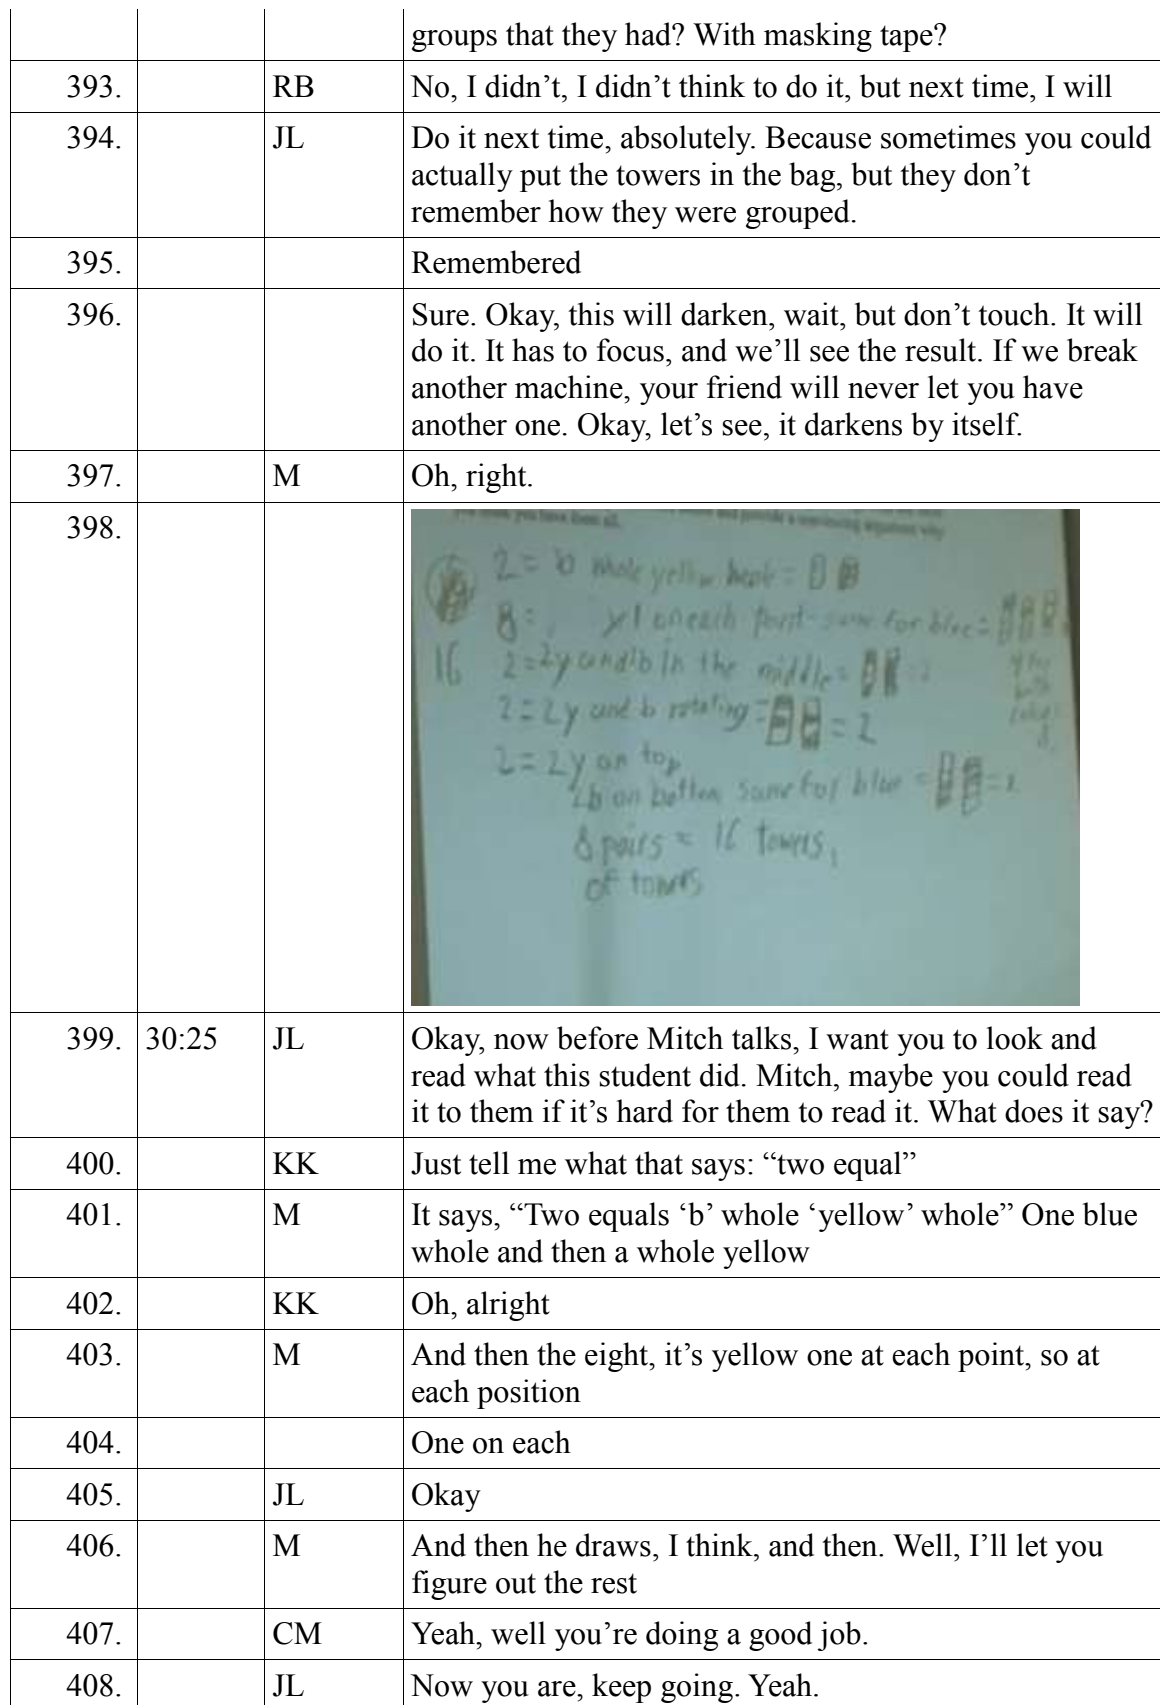 groups that they had? With masking tape?
393. RB No, I didn’t, I didn’t think to do it, but next time, I will
394. JL Do it next time, absolutely. Because sometimes you could
actually put the towers in the bag, but they don’t
remember how they were grouped.
395. Remembered
396. Sure. Okay, this will darken, wait, but don’t touch. It will
do it. It has to focus, and we’ll see the result. If we break
another machine, your friend will never let you have
another one. Okay, let’s see, it darkens by itself.
397. M Oh, right.
398.
you have them all. and provide a convincing argument why
2 = b whole yellow = 
8 = y 1 on each point same for blue =
16 2 = 2y and b in the middle =
2 = 2y and b rotating = = 2
2 = 2y on top
2b on bottom same for blue =
8 pairs = 16 towers
of towers
399. 30:25 JL Okay, now before Mitch talks, I want you to look and
read what this student did. Mitch, maybe you could read
it to them if it’s hard for them to read it. What does it say?
400. KK Just tell me what that says: “two equal”
401. M It says, “Two equals ‘b’ whole ‘yellow’ whole” One blue
whole and then a whole yellow
402. KK Oh, alright
403. M And then the eight, it’s yellow one at each point, so at
each position
404. One on each
405. JL Okay
406. M And then he draws, I think, and then. Well, I’ll let you
figure out the rest
407. CM Yeah, well you’re doing a good job.
408. JL Now you are, keep going. Yeah.